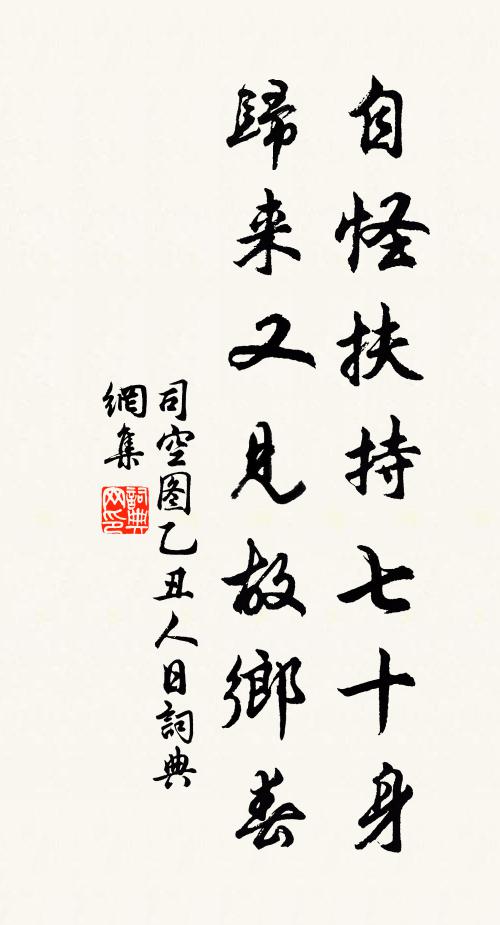 自怪扶持七十身
歸来又見故鄉春
司空图乙丑人日詞典
網集
詞典网印